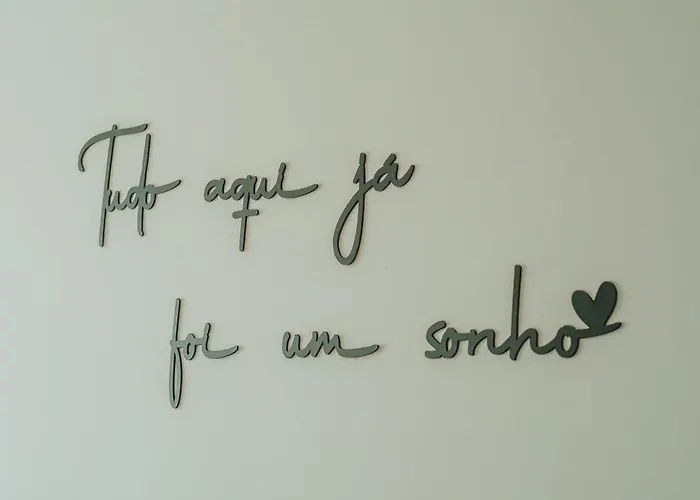 Tudo aqui já
foi um sonho